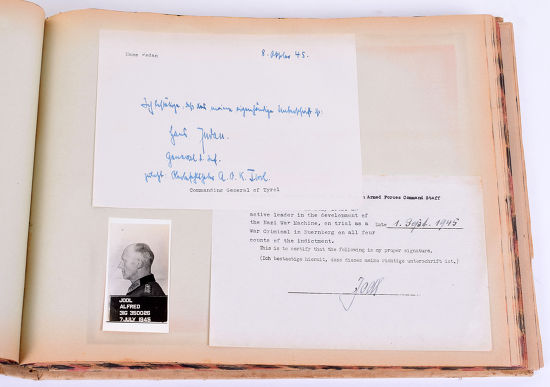 Hans Jordan
8. Oktober 45.
Ich bestätige, daß das meine eigenhändige Unterschrift ist.
Hans Jordan.
General d. Inf.
zuletzt Oberbefehlshaber A.O.K. Tirol.
Commanding General of Tyrol
n Armed Forces Command Staff
active leader in the development of
the Nazi War Machine, on trial as a
War Criminal in Nuernberg on all four
counts of the indictment.
Date 1. Sept. 1945
This is to certify that the following is my proper signature.
(Ich bestaetige hiermit, dass dieses meine richtige unterschrift ist.)
Jodl
JODL
ALFRED
31G 350026
7 JULY 1945